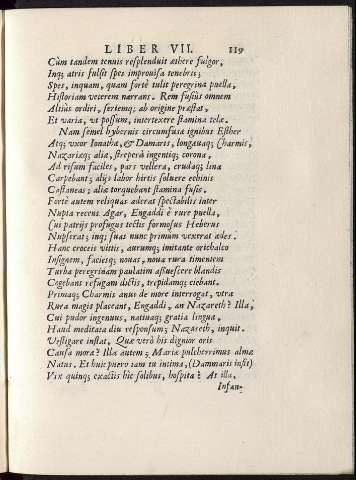 LIBER VII. 119
Cùm tandem tenuis resplenduit æthere fulgor,
Inq; atris fulsit spes improvisa tenebris;
Spes, inquam, quam fortè tulit peregrina puella,
Historiam veterem narrans. Rem fusiùs omnem
Altiùs ordiri, sertemq; ab origine præstat,
Et varia, ut possum, intertexere stamina telæ.
Nam semel hybernis circumfusa ignibus Esther
Atq; uxor Ionathæ, & Damaris, longævaq; Charmis,
Nazariæq; aliæ, streperâ ingentiq; corona,
Ad risum faciles, pars vellera, crudaq; lina
Carpebant; alijs labor hirtis solvere echinis
Castaneas; aliæ torquebant stamina fusis.
Fortè autem reliquas aderat spectabilis inter
Nupta recens Agar, Engaddi è rure puella,
Cui patrijs profugus tectis formosus Heberus
Nupserat; inq; suas nunc primùm vexerat ædes.
Hanc croceis vittis, aurumq; imitante orichalco
Insignem, facieq; novas, nova rura timentem
Turba peregrinam paulatim assuescere blandis
Cogebant refugam dictis, trepidamq; ciebant.
Primaq; Charmis anus de more interrogat, utra
Rura magis placeant, Engaddi, an Nazareth? Illa,
Cui pudor ingenuus, nativaq; gratia linguæ,
Haud meditata diu responsum; Nazareth, inquit.
Vestigare instat, Quæ verò his dignior oris
Causa mora? Illa autem; Mariæ pulcherrimus almæ
Natus. Et huic puero tam tu intima, (Dammaris infit)
Vix quinq; exactis hîc solibus, hospita? At illa,
Infan-